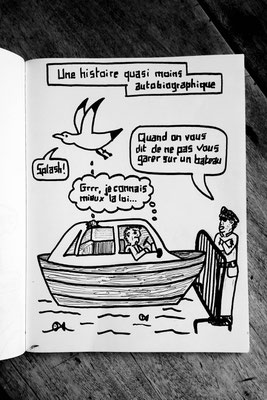 Une histoire quasi moins
autobiographique
Splash!
Quand on vous
dit de ne pas vous
garer sur un bateau
Grrr, je connais
mieux la loi...